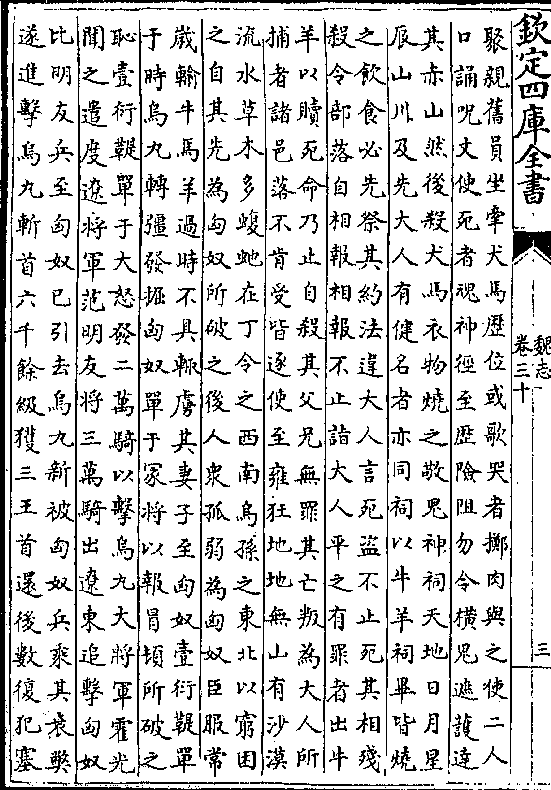 欽定四庫全書
魏志
卷三十
三
聚親舊員坐牽犬馬歷位或歌哭者擲肉與之使二人
口誦呪文使死者魂神徑至歷險阻勿令橫鬼遮護達
其赤山然後殺犬馬衣物燒之敬鬼神祠天地日月星
辰山川及先大人有健名者亦同祠以牛羊祠畢皆燒
之飲食必先祭其約法違大人言死盜不止死其相殘
殺令部落自相報相報不止詣大人平之有罪者出牛
羊以贖死命乃止自殺其父兄無罪其亡叛為大人所
捕者諸邑落不肯受皆逐使至雍狂地地無山有沙漠
流水草木多蝮虵在丁令之西南烏孫之東北以窮困
之自其先為匈奴所破之後人衆孤弱為匈奴臣服常
歲輸牛馬羊過時不具輒虜其妻子至匈奴壹衍鞮單
于時烏丸轉彊發掘匈奴單于冢將以報冒頓所破之
恥壹衍鞮單于大怒發二萬騎以擊烏丸大將軍霍光
聞之遣度遼將軍范明友將三萬騎出遼東追擊匈奴
比明友兵至匈奴已引去烏丸新被匈奴兵乘其衰弊
遂進擊烏丸斬首六千餘級獲三王首還後數復犯塞